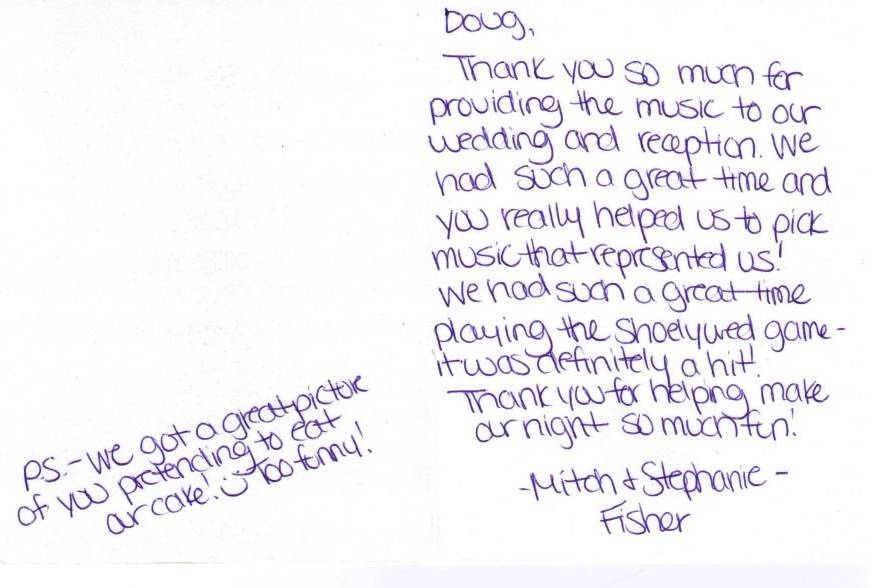 Doug,
Thank you so much for
providing the music to our
wedding and reception. We
had such a great time and
you really helped us to pick
music that represented us!
We had such a great time
playing the Shoelywed game -
it was definitely a hit!
Thank you for helping make
our night so much fun!
- Mitch & Stephanie -
Fisher
P.S. - We got a great picture
of you pretending to eat
our cake! Too funny!